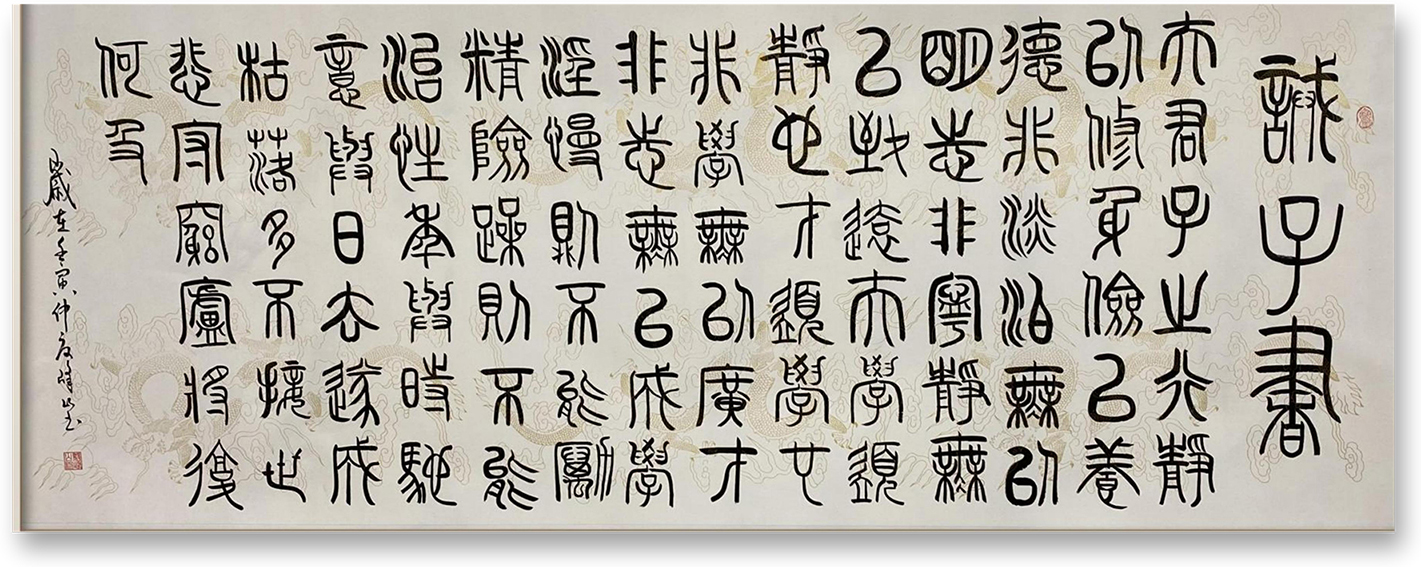 誡子書
夫君子之行靜
以修身儉以養
德非淡泊無以
明志非寧靜無
以致遠夫學須
靜也才須學也
非學無以廣才
非志無以成學
淫慢則不能勵
精險躁則不能
治性年與時馳
意與日去遂成
枯落多不接世
悲守窮廬將復
何及
歲在壬寅仲夏